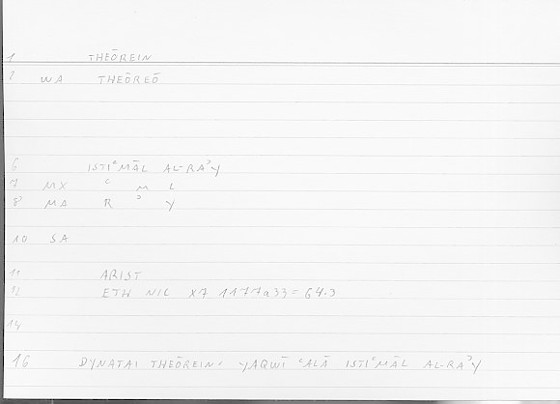 1 THEŌREIN
2 WA THEŌREŌ
6 ISTIʿMĀL AL-RAʾY
7 MX ʿ M L
8 MA R ʾ Y
10 SA
11 ARIST
12 ETH NIC X7 1177a33 = 64.3
14
16 DYNATAI THEŌREIN: YAQWĪ ʿALĀ ISTIʿMĀL AL-RAʾY